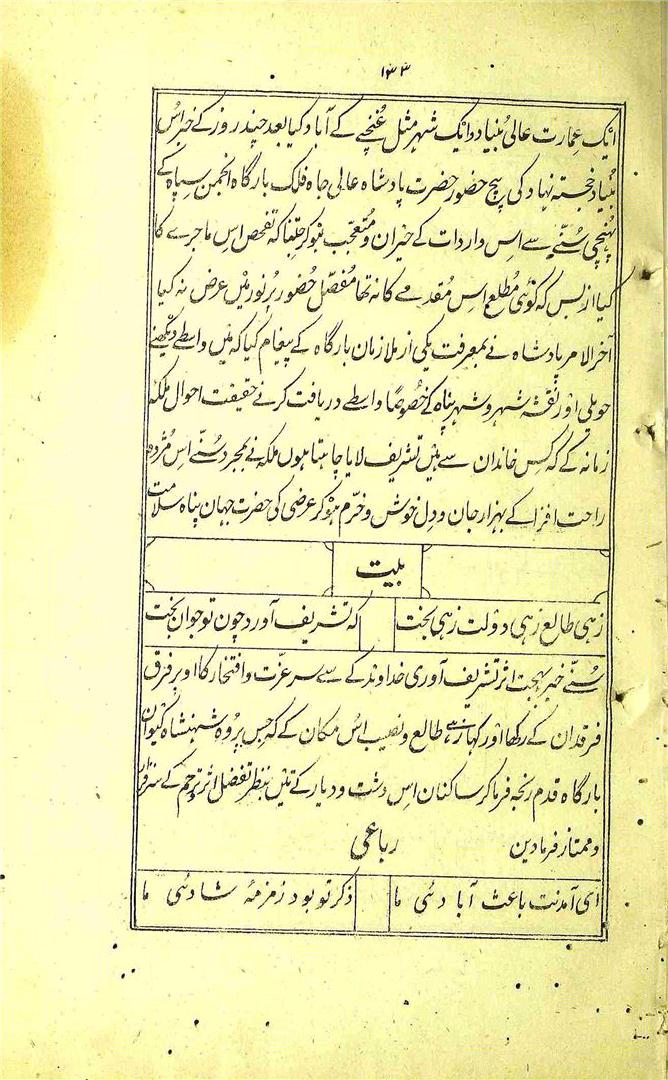 ۱۳۳
ایک عمارت عالی بنیاد و ایک شہر مثل غنچے کے آباد کیا بعد چند روز کے خبر اُس
بنیاد خجستہ نہاد کی بیچ حضور حضرت پادشاہ عالی جاہ فلک بارگاہ انجمن سپاہ کے
پہنچی سُنّے سے اس واردات کے حیران و متعجب ہو کر جتنا کہ تفحص اس ماجرے کا
کیا از بس کہ کوئی مطلع اس مقدمے کا نہ تھا مفصّل حضور پُر نور میں عرض نہ کیا
آخر الامر پادشاہ نے بمعرفت یکی از ملازمان بارگاہ کے پیغام کیا کہ میں واسطے دیکھنے
حویلی اور نقشہ شہر و شہر پناہ کے خصوصًا واسطے دریافت کرنے حقیقت احوال ملکۂ
زمانہ کے کہ کس خاندان سے ہیں تشریف لایا چاہتا ہوں ملکہ نے بمجرد سُنّے اس مژدہ
راحت افزا کے بہزار جان و دل خوش و خرّم ہو کر عرضی کی حضرت جہان پناہ سلامت
بیت
زہی طالع زہی دولت زہی بخت
کہ تشریف آورد چون تو جوان بخت
سُنّے خبر بہجت اثر تشریف آوری خداوند کے سے سر عزّت و افتخار کا اوپر فرق
فرقدان کے رکھا اور کہا زہے طالع و نصیب اُس مکان کے کہ جس پر وہ شہنشاہ کیوان
بارگاہ قدم رنجہ فرما کر ساکنان اس دشت و دیار کے تئیں بنظر تفضل اثر ترحم کے سرافراز
و ممتاز فرمادین رباعی
ای آمدنت باعث آبادئی ما
ذکر تو بود زمزمۂ شادئی ما